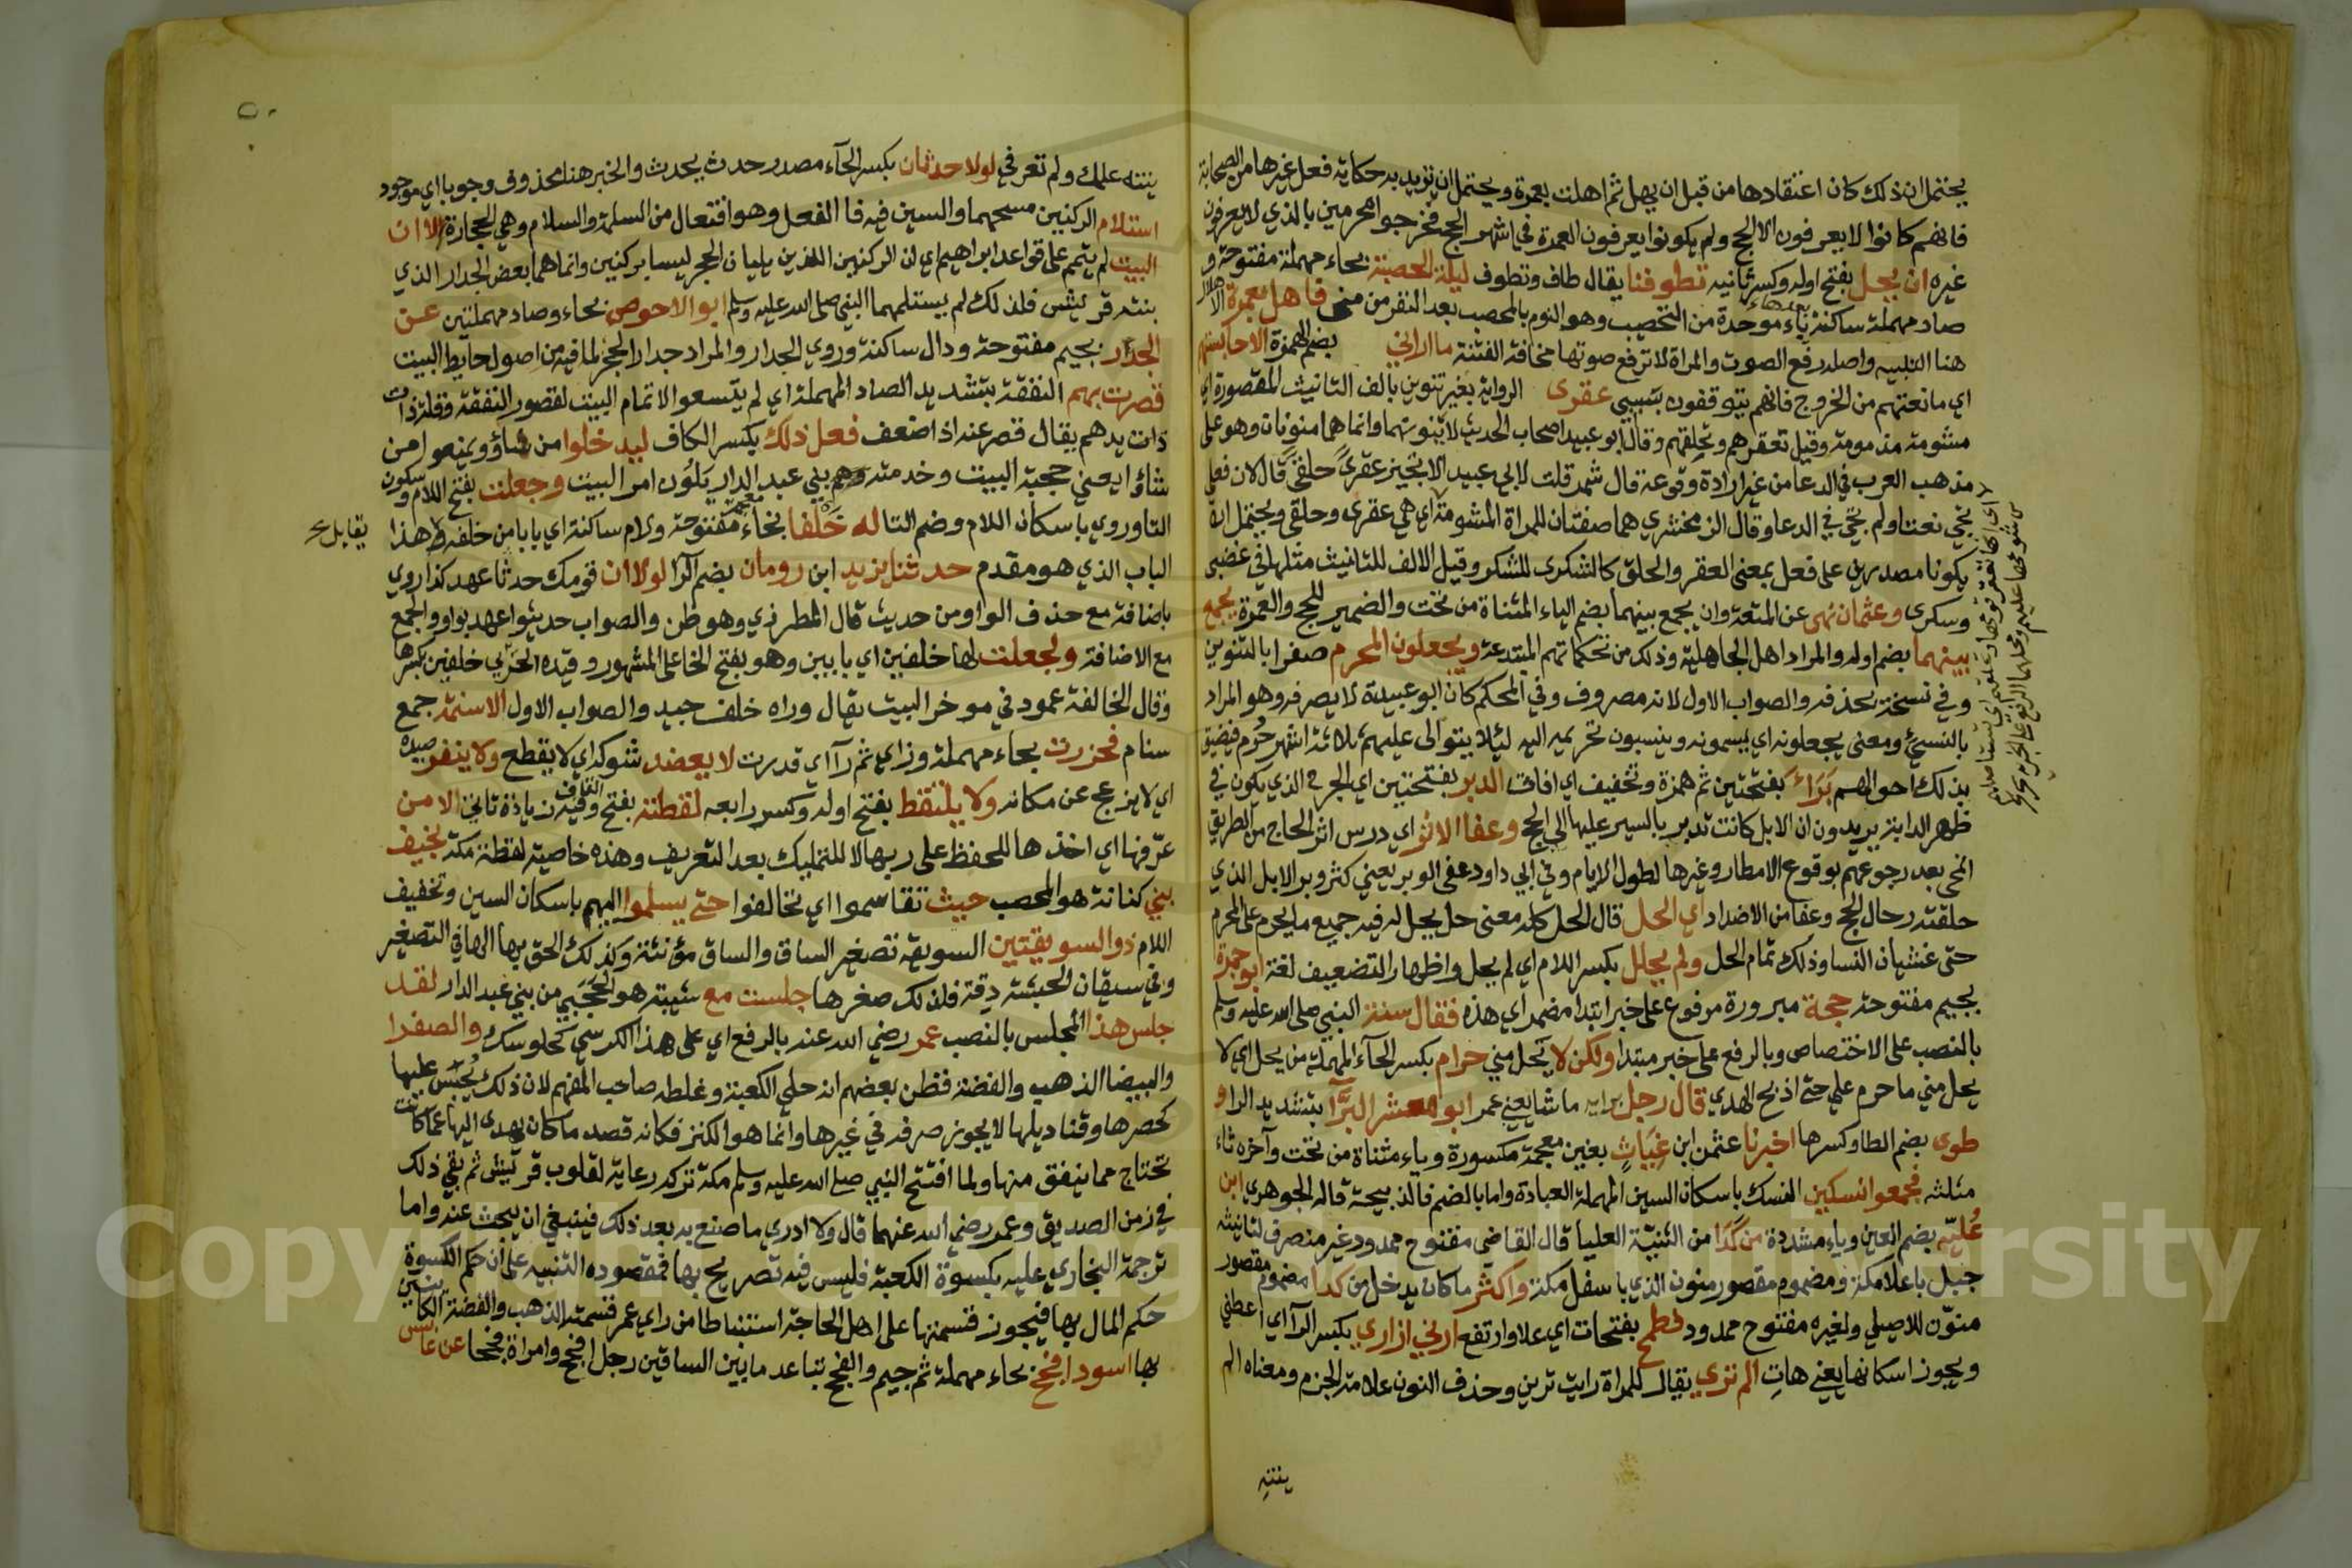 يحتمل ان ذلك كان اعتقادها من قبل ان يهل ثم اهلت بعمرة ويحتمل ان تريد به حكاية فعل غيرها من الصحابة
فانهم كانوا لا يعرفون الا الحج ولم يكونوا يعرفون العمرة في اشهر الحج فخرجوا محرمين بالذي لا يعرفون
غيره ان يحل بفتح اوله وكسر ثانيه تطوفنا يقال طاف وتطوف ليلة الحصبة بحاء مهملة مفتوحة و
صاد مهملة ساكنة بعدهاء باء موحدة من التحصيب وهو النوم بالمحصب بعد النفر من منى فاهل بعمرة الاهلال
هنا التلبيه واصله رفع الصوت والمراة لا ترفع صوتها مخافة الفتنة ما اراني بضم الهمزة الا حابستهم
اي مانعتهم من الخروج فانهم يتوقفون بسببي عقرى الرواية بغير تنوين بالف التانيث المقصورة اي
مشومة مذمومة وقيل تعقرهم وتحلقهم وقال ابو عبيد اصحاب الحديث لا ينونهما وانما هما منونات وهو على
مذهب العرب في الدعا من غير ارادة وقوعه قال شمر قلت لابي عبيد الا تجيز عقرى حلقى قال لان فعلى
يجي نعتا ولم يجي في الدعا وقال الزمخشري هما صفتان للمراة المشومة اي هي عقرى وحلقى ويحتمل ان
يكونا مصدرين على فعلى بمعنى العقر والحلق كالشكوى للشكو وقيل الالف للتانيث مثلها في غضبى
وسكرى وعثمان نهى عن المتعة وان يجمع بينهما بضم الياء المثناة من تحت والضمير للحج والعمرة يجمع
بينهما بضم اوله والمراد اهل الجاهلية وذلك من تحكماتهم المبتدعة ويجعلون المحرم صفرا بالتنوين
وفي نسخة بحذفه والصواب الاول لانه مصروف وفي المحكم كان ابو عبيدة لا يصرفه وهو المراد
بالنسيء ومعنى يجعلونه اي يسمونه وينسبون تحريمه اليه ليلا يتوالى عليهم ثلاثة اشهر حرم فيضيق
بذلك احوالهم برا بفتحتين ثم همزة وتخفيف اي افاق الدبر بفتحتين اي الجرح الذي يكون في
ظهر الدابة يريدون ان الابل كانت تدبر بالسير عليها الى الحج وعفا الاثر اي درس اثر الحاج من الطريق
انمحى بعد رجوعهم بوقوع الامطار وغيرها لطول الايام وفي ابي داود عفى الوبر يعني كثر وبر الابل الذي
حلقته رحال الحج وعفا من الاضداد اي الحل قال الحل كله معنى حل يحل له فيه جميع ما يحرم على المحرم
حتى غشيان النسا وذلك تمام الحل ولم يحلل بكسر اللام اي لم يحل واظهار التضعيف لغة ابو جمرة
بجيم مفتوحة حجة مبرورة مرفوع على خبر ابتدا مضمر اي هذه فقال سنة النبي صلى الله عليه وسلم
بالنصب على الاختصاص وبالرفع على خبر مبتدا ولكن لا يحل مني حرام بكسر الحاء المهملة من يحل اي لا
يحل مني ما حرم علي حتى اذبح الهدي قال رجل برايه ما شا يعني عمر ابو معشر البرا بتشديد الراء و
طوى بضم الطا وكسرها اخبرنا عثمن ابن غياث بغين معجمة مكسورة وياء مثناة من تحت وآخره ثاء
مثلثه فجمعوا نسكين النسك باسكان السين المهملة العبادة واما بالضم فالذبيحة قاله الجوهري ابن
عليّه بضم العين وياء مشددة من كدا من الثنية العليا قال القاضي مفتوح ممدود غير منصرف لتانيثه
جبل باعلا مكة ومضموم مقصور منون الذي باسفل مكة واكثر ما كان يدخل من كدا مضموم مقصور
منوّن للاصيلي ولغيره مفتوح ممدود فطمح بفتحات اي علا وارتفع ارني ازاري بكسر الرا اي اعطني
ويجوز اسكانها يعني هات الم تري يقال للمراة رايت ترين وحذف النون علامة الجزم ومعناه الم
ينته
ينته علمك ولم تعرفي لولا حدثان بكسر الحاء مصدر حدث يحدث والخبر هنا محذوف وجوبا اي موجود
استلام الركنين مسحهما والسين فيه فا الفعل وهو افتعال من السلمة والسلام وهي الحجارة الا ان
البيت لم يتمم على قواعد ابراهيم اي لان الركنين اللذين يليان الحجر ليسا بركنين وانما هما بعض الجدار الذي
بنته قريش فلذلك لم يستلمهما النبي صلى الله عليه وسلم ابو الاحوص بحاء وصاد مهملتين عن
الجدار بجيم مفتوحة ودال ساكنة وروي الجدار والمراد جدار الحجر لما فيه من اصول حايط البيت
قصرت بهم النفقة بتشديد الصاد المهملة اي لم يتسعوا لاتمام البيت لقصور النفقة وقلة ذات
ذات يدهم يقال قصر عنه اذا ضعف فعل ذلك بكسر الكاف ليدخلوا من شاؤ ويمنعوا من
شاؤا يعني حجبة البيت وخدمته وهم بني عبد الدار يلون امر البيت وجعلت بفتح اللام وسكون
التا وروي باسكان اللام وضم التا له خلفا بخاء معجمة مفتوحة ولام ساكنة اي بابا من خلفه هذا
الباب الذي هو مقدم حدثنا يزيد ابن رومان بضم الرا لولا ان قومك حدثا عهد كذا روي
باضافة مع حذف الواو من حديث قال المطرزي وهو ظن والصواب حديثوا عهد بواو والجمع
مع الاضافة ولجعلت لها خلفين اي بابين وهو بفتح الخا على المشهور وقيده الحربي خلفين بكسرها
وقال الخالفة عمود في موخر البيت يقال وراه خلف جيد والصواب الاول الاسنمة جمع
سنام فحزرت بحاء مهملة وزاي ثم را اي قدرت لا يعضد شوكه اي لا يقطع ولا ينفر صيده
اي لا يزعج عن مكانه ولا يلتقط بفتح اوله وكسر رابعه لقطته بفتح القاف وفيه زيادة تا الا من
عرّفها اي اخذها للحفظ على ربها لا للتمليك بعد التعريف وهذه خاصية لقطة مكة بخيف
بني كنانة هو المحصب حيث تقاسموا اي تحالفوا حتى يسلموا اليهم باسكان السين وتخفيف
اللام ذو السويقتين السويقة تصغير الساق والساق مؤنثة وكذلك الحق بها الها في التصغير
وفي سيقان الحبشة دقة فلذلك صغرها جلست مع شيبة هو الحجبي من بني عبد الدار لقد
جلس هذا المجلس بالنصب عمر رضي الله عنه بالرفع اي على هذا الكرسي كجلوسك والصفرا
والبيضا الذهب والفضة فظن بعضهم انه حلي الكعبة وغلطه صاحب المفهم لان ذلك يحبس عليها
كحصرها وقناديلها لا يجوز صرفه في غيرها وانما هو الكنز فكانه قصد ما كان يهدى اليها عما كانت
تحتاج مما ينفق منها ولما افتتح النبي صلى الله عليه وسلم مكة تركه رعاية لقلوب قريش ثم بقي ذلك
في زمن الصديق وعمر رضي الله عنهما قال ولا ادري ما صنع به بعد ذلك فينبغي ان يبحث عنه واما
ترجمة البخاري عليه بكسوة الكعبة فليس فيه تصريح بها فمقصوده التنبيه على ان حكم الكسوة
حكم المال بها فيجوز قسمتها على اهل الحاجة استنباطا من راي عمر قسمة الذهب والفضة الكاينين
بها اسود افحج بحاء مهملة ثم جيم والفحج تباعد ما بين الساقين رجل افحج وامراة فحجا عن عابس
يقابل
Copyright © King Saud University